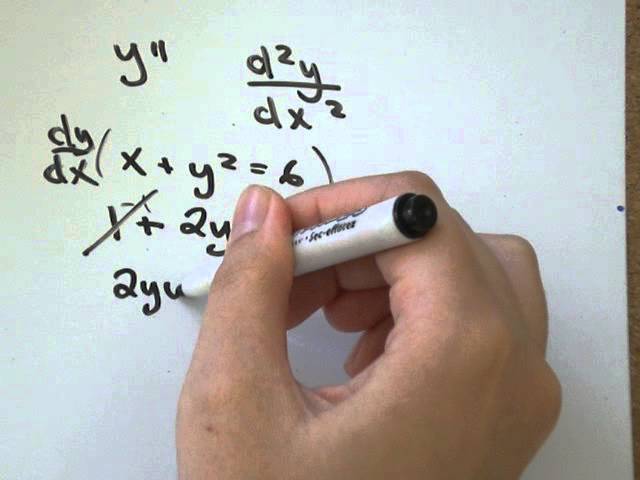 y"
d²y
dx²
dy
dx ( x + y² = 6 )
1 + 2y
2yy
Sec-effacez